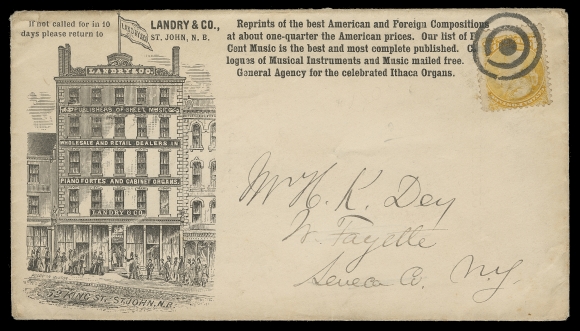 If not called for in 10
days please return to
LANDRY & CO.,
ST. JOHN, N. B.
Reprints of the best American and Foreign Compositions
at about one-quarter the American prices. Our list of
Cent Music is the best and most complete published.
logues of Musical Instruments and Music mailed free.
General Agency for the celebrated Ithaca Organs.
LANDRY & CO.
PUBLISHERS OF SHEET MUSIC
WHOLESALE AND RETAIL DEALERS IN
PIANO FORTES AND CABINET ORGANS
LANDRY & CO.
52 KING ST. ST. JOHN, N.B.
Mr H. K. Dey
W. Fayette
Seneca Co. N.Y.